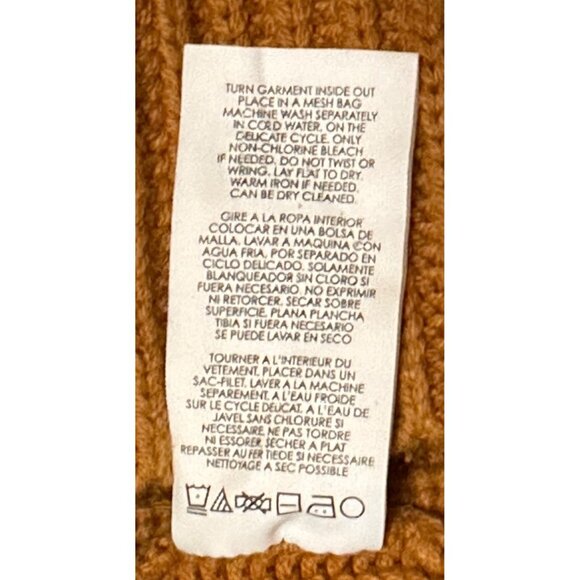 TURN GARMENT INSIDE OUT
PLACE IN A MESH BAG
MACHINE WASH SEPARATELY
IN COLD WATER, ON THE
DELICATE CYCLE. ONLY
NON-CHLORINE BLEACH
IF NEEDED. DO NOT TWIST OR
WRING. LAY FLAT TO DRY.
WARM IRON IF NEEDED.
CAN BE DRY CLEANED.
GIRE A LA ROPA INTERIOR
COLOCAR EN UNA BOLSA DE
MALLA. LAVAR A MAQUINA CON
AGUA FRIA, POR SEPARADO EN
CICLO DELICADO. SOLAMENTE
BLANQUEADOR SIN CLORO SI
FUERA NECESARIO. NO EXPRIMIR
NI RETORCER. SECAR SOBRE
SUPERFICIE, PLANA PLANCHA
TIBIA SI FUERA NECESARIO
SE PUEDE LAVAR EN SECO
TOURNER A L'INTERIEUR DU
VETEMENT. PLACER DANS UN
SAC-FILET. LAVER A LA MACHINE
SEPAREMENT. A L'EAU FROIDE
SUR LE CYCLE DELICAT. A L'EAU DE
JAVEL SANS CHLORURE SI
NECESSAIRE. NE PAS TORDRE
NI ESSORER. SECHER A PLAT
REPASSER AU FER TIEDE SI NECESSAIRE
NETTOYAGE A SEC POSSIBLE